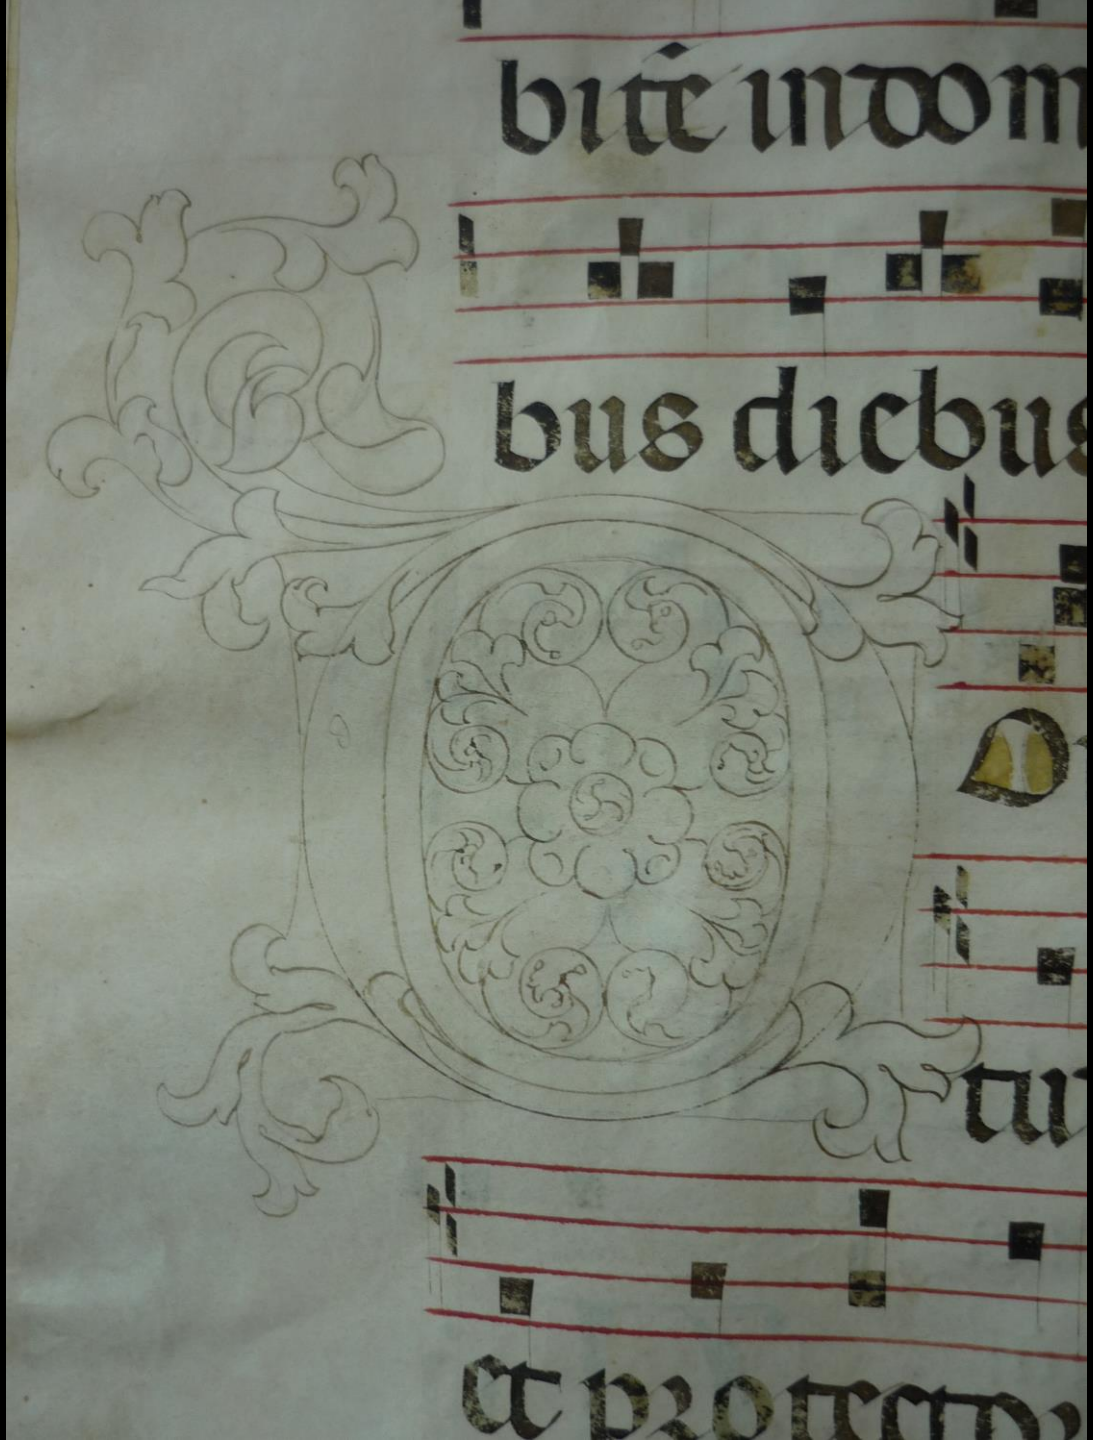 bitē in dom
bus diebus
O
tur
et protector